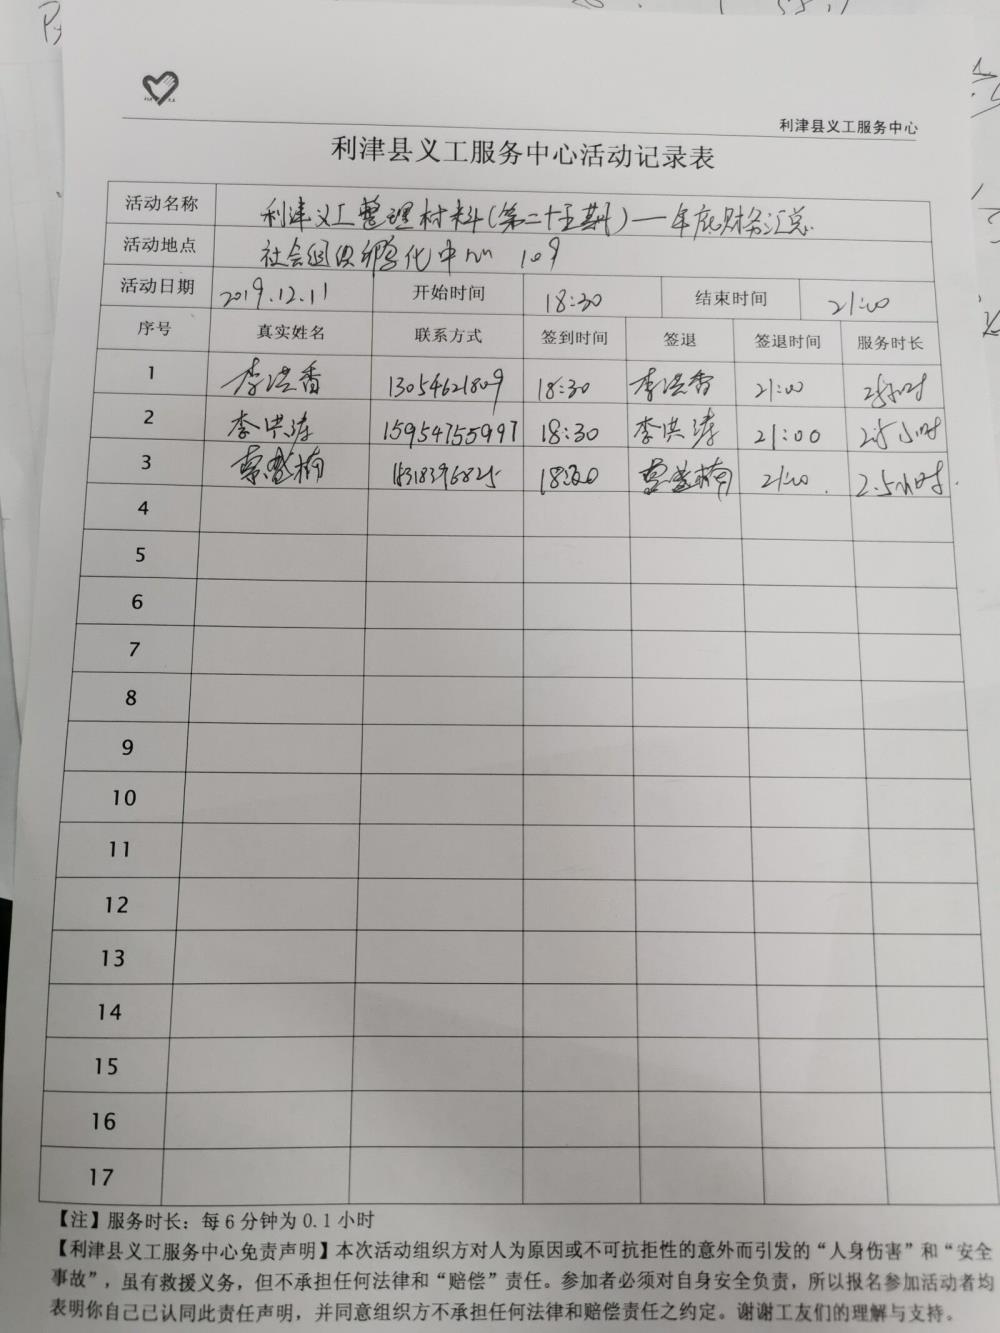 利津县义工服务中心
利津县义工服务中心活动记录表
活动名称 利津义工整理材料(第二十五期)—年底财务汇总
活动地点 社会组织孵化中心 109
活动日期 2019.12.11 开始时间 18:30 结束时间 21:00
序号 真实姓名 联系方式 签到时间 签退 签退时间 服务时长
1 李洪香 13054621809 18:30 李洪香 21:00 2.5小时
2 李洪涛 15954755997 18:30 李洪涛 21:00 2.5小时
3 楠 15318396825 18:30 楠 21:00 2.5小时
4
5
6
7
8
9
10
11
12
13
14
15
16
17
【注】服务时长：每6分钟为0.1小时
【利津县义工服务中心免责声明】本次活动组织方对人为原因或不可抗拒性的意外而引发的“人身伤害”和“安全
事故”，虽有救援义务，但不承担任何法律和“赔偿”责任。参加者必须对自身安全负责，所以报名参加活动者均
表明你自己已认同此责任声明，并同意组织方不承担任何法律和赔偿责任之约定。谢谢工友们的理解与支持。